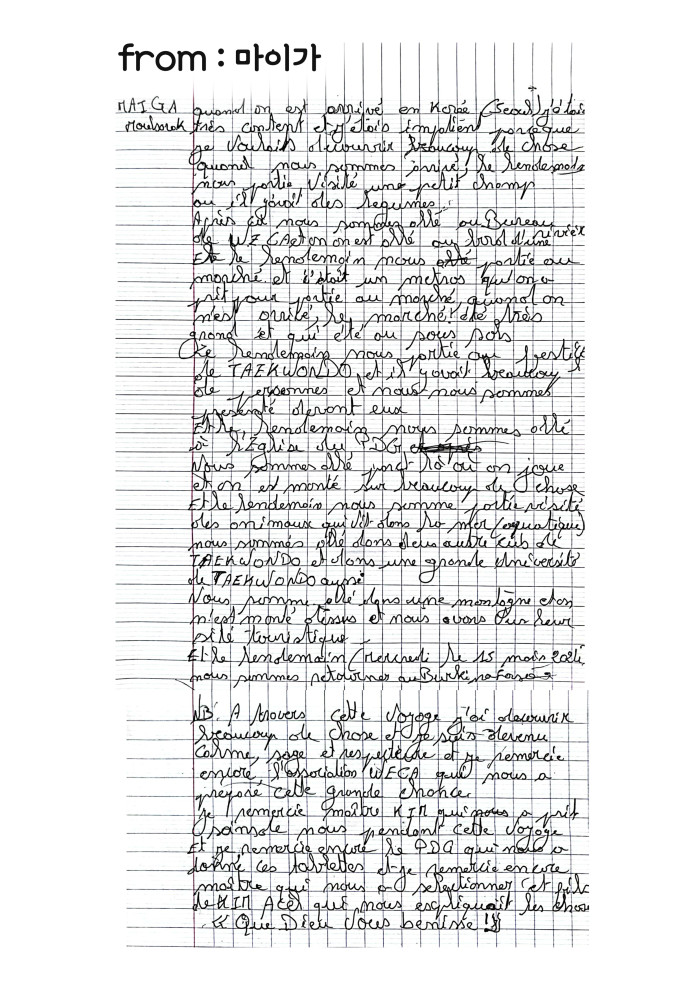 from : 마이가
MAIGA quand on est arrivé en Korée (Seoul) j'étais
très content et j'étais impatient parceque
je voulais découvrir beaucoup de chose
quand nous sommes arrivé, le lendemain
nous partie visité une petit champ
ou il y avait des legumes.
Après ça nous sommes allé au Bureau
de WECA et on on est allé au bord d'une rivière
Et le lendemain nous partie au
marché et c'était un metros qu'on a
prit pour partie au marché, quand on
n'est arrivé, le marché été très
grand et qui été au sous sols
Le lendemain nous partie au
de TAEKWONDO et il y avait beaucoup
de personnes et nous nous sommes
presenté devant eux
Et le lendemain nous sommes allé
à l'Eglise du PDG
Nous sommes allé là où on joue
et on est monté sur beaucoup de chose
Et le lendemain nous somme partie visité
des animaux qui vit dans la mer (aquatique)
nous sommes allé dans deux autre club de
TAEKWONDO et dans une grande Université
de TAEKWONDO aussi
Nous somme allé dans une montagne et on
n'est monté dessus et nous avons leur
sité touristique
Et le lendemain (mercredi le 15 mais
nous sommes retourner au Burkina Faso
NB: A travers cette voyage j'ai decouvrir
beaucoup de chose et je suis devenu
calme, sage et respectueure et je remercie
encore l'association WECA qui nous a
preparé cette grande chance.
je remercie maître KIM qui nous a prit
soin de nous pendant cette voyage
Et je remercie encore le PDG qui nous a
donné ces tablettes et je remercie encore
maître qui nous a selectionner et
de KIM qui nous expliquait les chose
« Que Dieu vous benisse !!